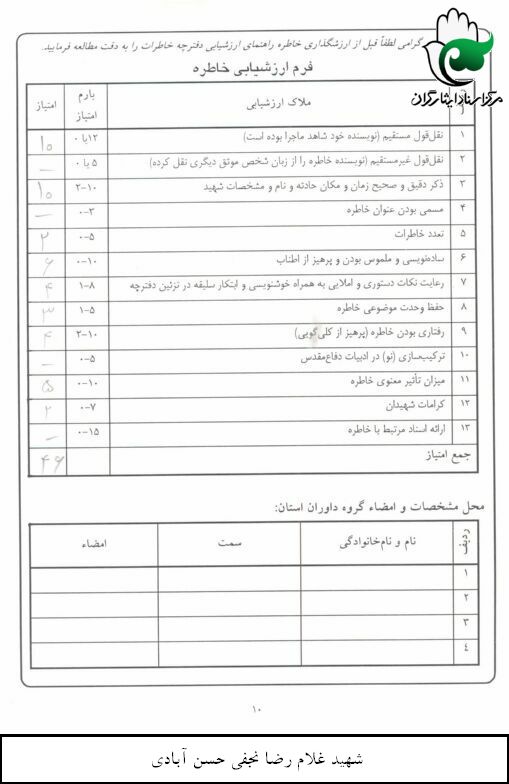 گرامی لطفاً قبل از ارزشگذاری خاطره راهنمای ارزشیابی دفترچه خاطرات را به دقت مطالعه فرمایید.
مرکز اسناد ایثارگران
فرم ارزشیابی خاطره
ملاک ارزشیابی بارم امتیاز امتیاز
۱ نقل‌قول مستقیم (نویسنده خود شاهد ماجرا بوده است) ۱۲ یا ۰ ۱۰
۲ نقل‌قول غیرمستقیم (نویسنده خاطره را از زبان شخص موثق دیگری نقل کرده) ۵ یا ۰ –
۳ ذکر دقیق و صحیح زمان و مکان حادثه و نام و مشخصات شهید ۲-۱۰ ۱۰
۴ مسمی بودن عنوان خاطره ۰-۳ –
۵ تعدد خاطرات ۰-۵ ۲
۶ ساده‌نویسی و ملموس بودن و پرهیز از اطناب ۰-۱۰ ۶
۷ رعایت نکات دستوری و املایی به همراه خوشنویسی و ابتکار سلیقه در تزئین دفترچه ۱-۸ ۴
۸ حفظ وحدت موضوعی خاطره ۱-۵ ۳
۹ رفتاری بودن خاطره (پرهیز از کلی‌گویی) ۲-۱۰ ۴
۱۰ ترکیب‌سازی (نو) در ادبیات دفاع‌مقدس ۰-۵ –
۱۱ میزان تأثیر معنوی خاطره ۰-۱۰ ۵
۱۲ کرامات شهیدان ۰-۷ ۲
۱۳ ارائه اسناد مرتبط با خاطره ۰-۱۵ –
جمع امتیاز ۴۶
محل مشخصات و امضاء گروه داوران استان:
ردیف نام و نام‌خانوادگی سمت امضاء
۱
۲
۳
۴
۱۰
شهید غلام رضا نجفی حسن آبادی